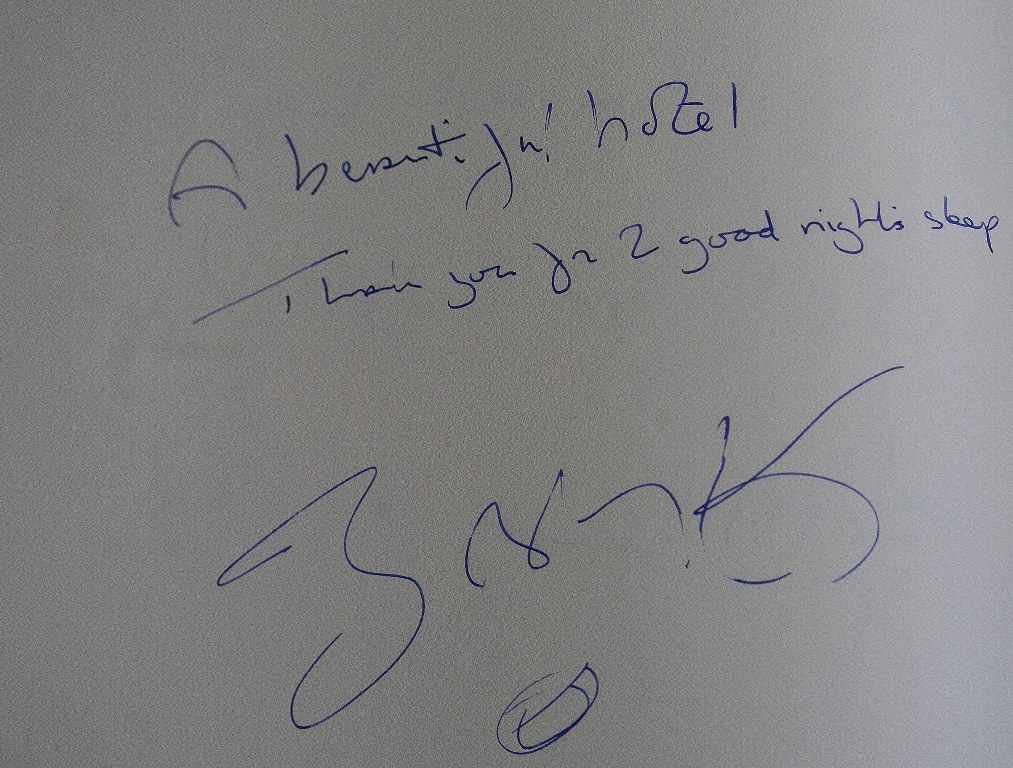 A beautiful hotel
Thank you for 2 good nights sleep